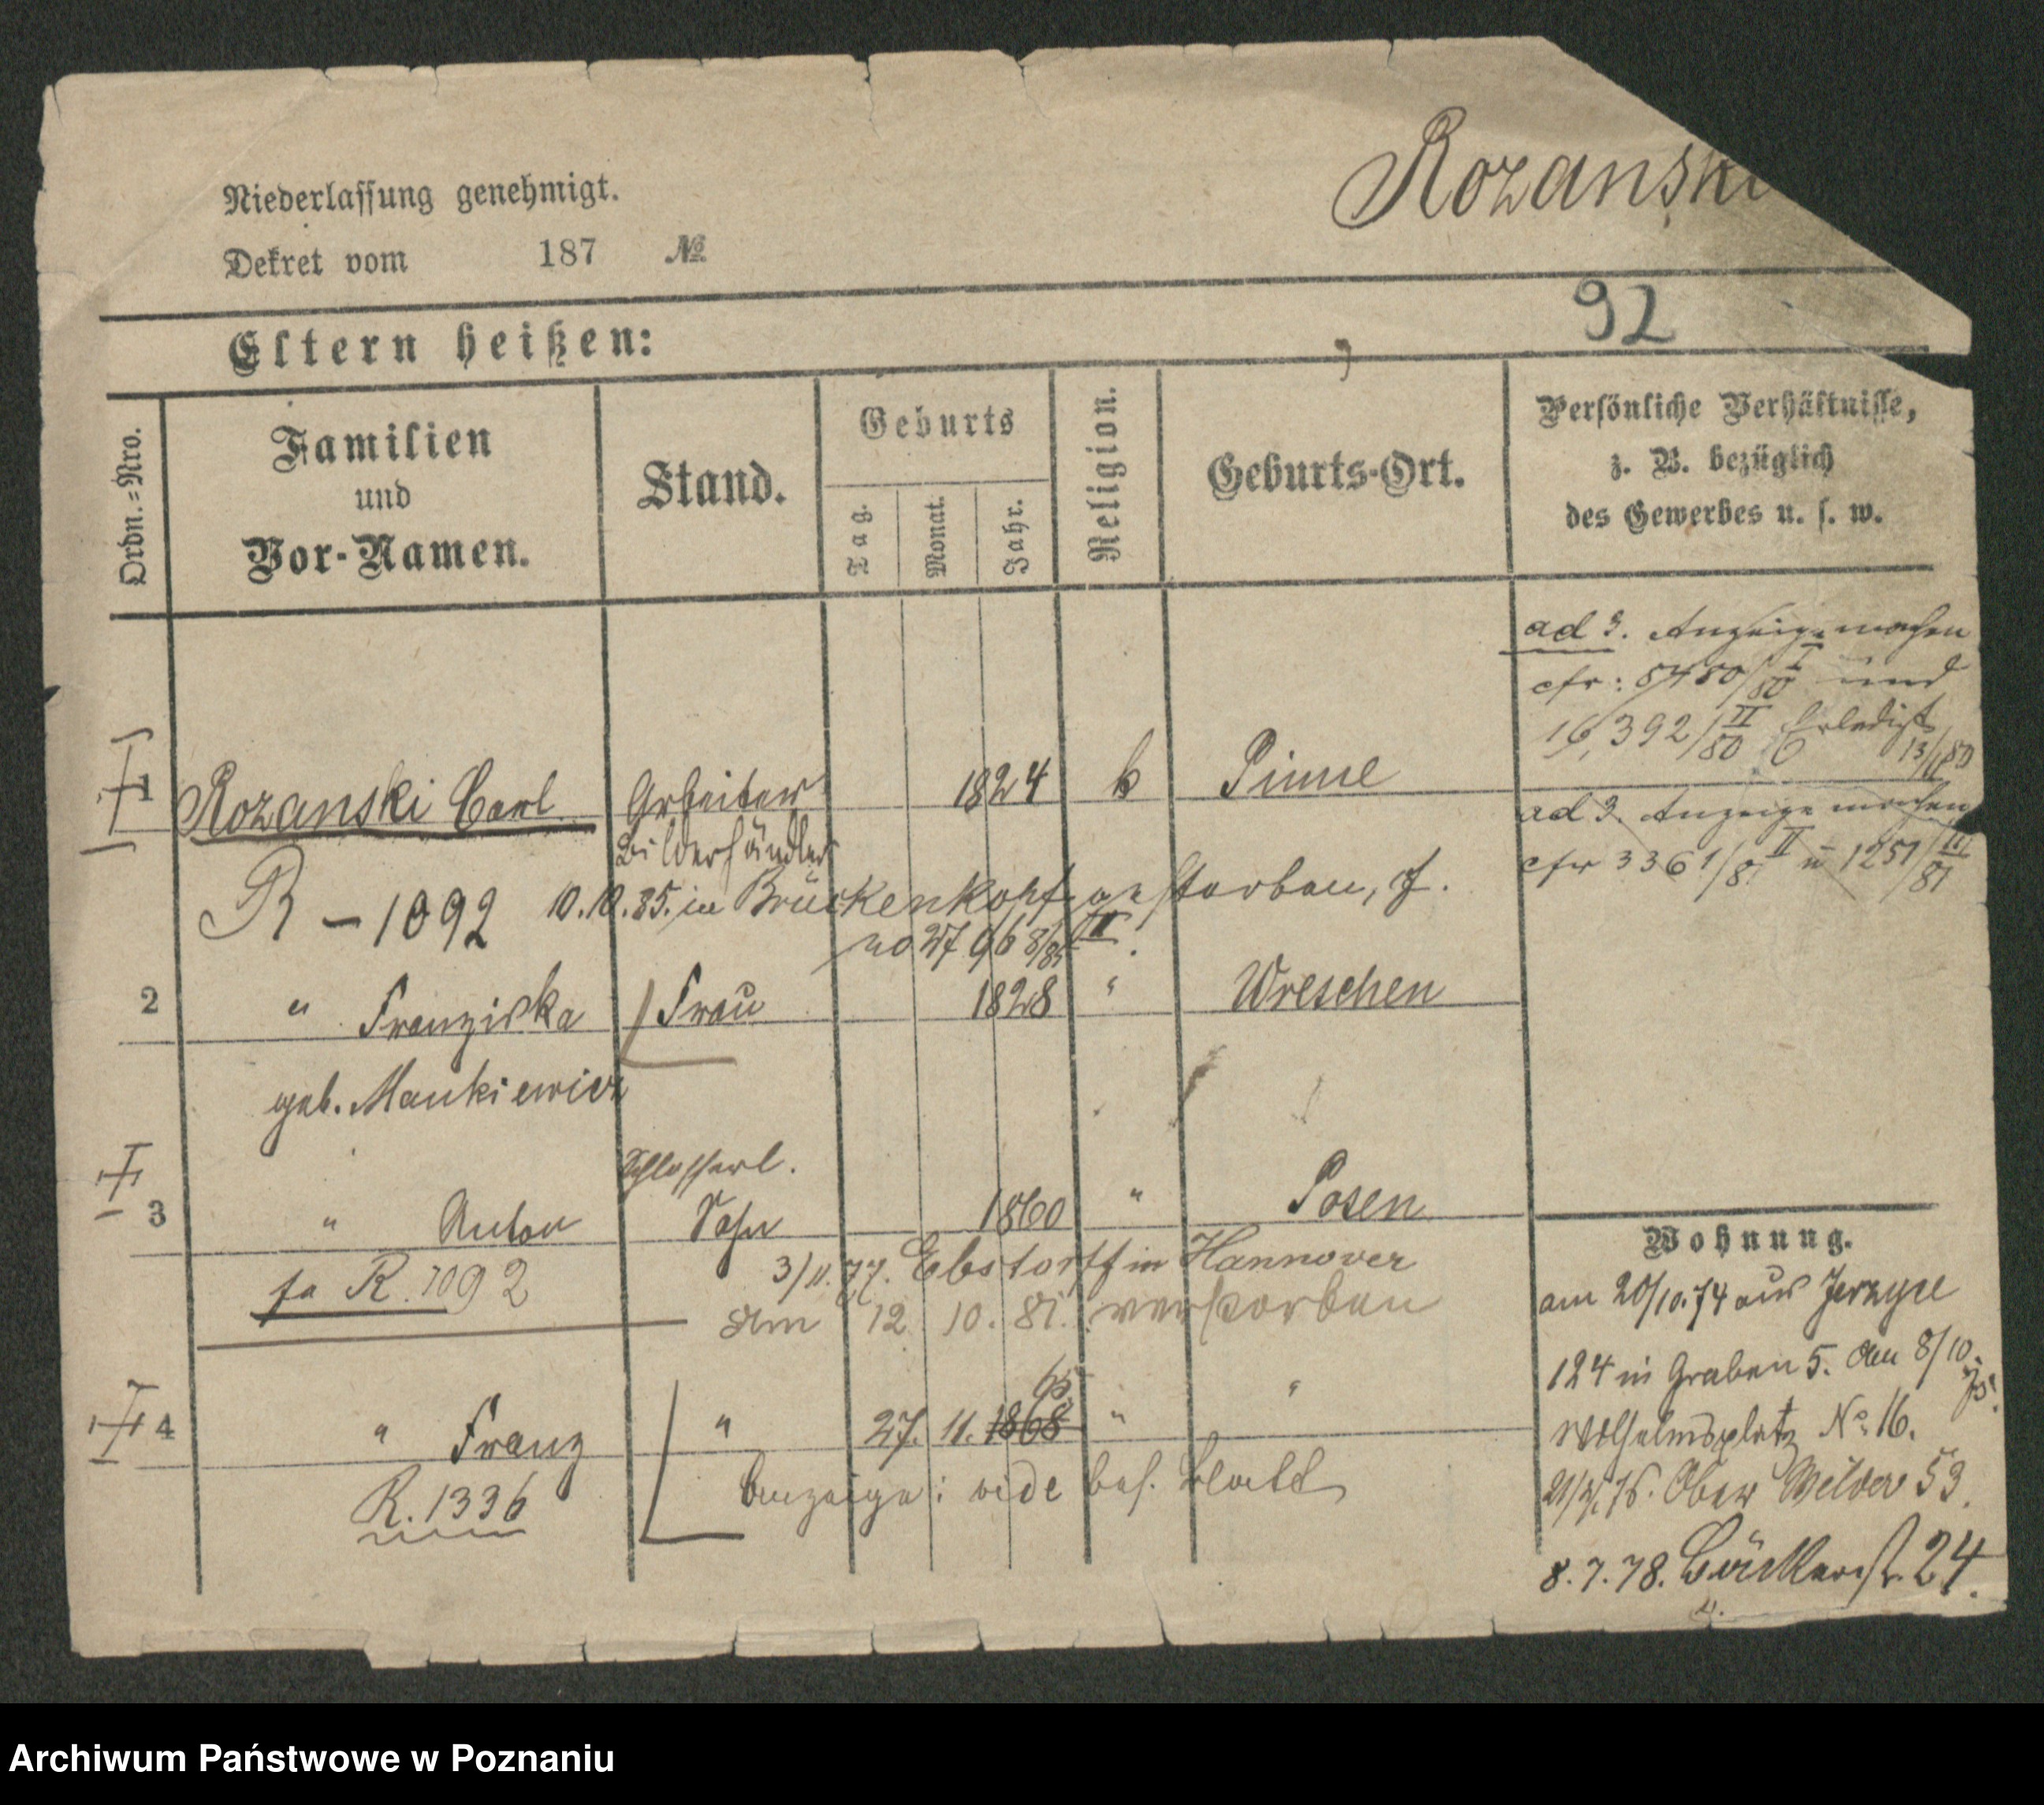 Rozanski
Niederlassung genehmigt.
Dekret vom 187 №
92
Eltern heißen:
Ordn.=Nro.
Familien
und
Vor-Namen.
Stand.
Geburts
Tag.
Monat.
Jahr.
Religion.
Geburts-Ort.
Persönliche Verhältnisse,
z. B. bezüglich
des Gewerbes u. s. w.
ad 3. Anzeige machen
cfr: 5480/I 80 und
16,392/II 80 Erledigt
ad 3. Anzeige machen
cfr 3361/8 II u 1251/III 81
1 Rozanski Carl Arbeiter 1824 k Pinne
Bilderhändler
R – 1092 10.10.85. in Brückenkopf gestorben, J.
2 " Franziska Frau 1828 " Wreschen
geb. Mankiewicz
Schlosserl.
3 " Anton Sohn 1860 " Posen
fa R. 1092 3/11.77. Ebstorff in Hannover
Am 12 10. 81. verstorben
65.
4 " Franz " 27. 11. 1868 " "
R. 1336 Anzeige: vide bes. Blatt
Wohnung.
am 20/10.74 aus Jerzyce
124 in Graben 5. Am 8/10. 75.
Wilhelmsplatz No 16.
Ober Wilda 53.
8.7.78. Bäckerst. 24.
Archiwum Państwowe w Poznaniu